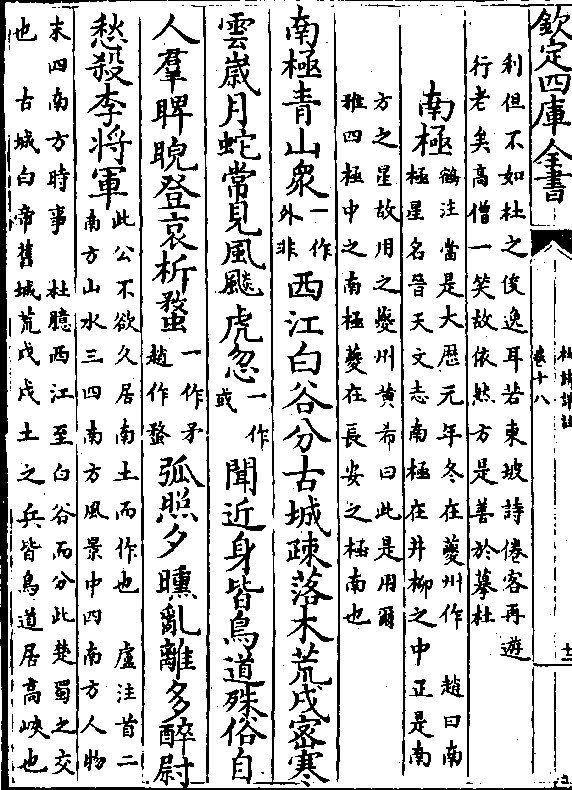 欽定四庫全書
杜詩詳註
卷十八
十二
利但不如杜之俊逸耳若東坡詩倦客再遊
行老矣高僧一笑故依然方是善於摹杜
南極 鶴注當是大歷元年冬在夔州作 趙曰南
極星名晉天文志南極在井柳之中正是南
方之星故用之夔州黃希曰此是用爾
雅四極中之南極夔在長安之極南也
南極青山衆一作外非西江白谷分古城疎落木荒戍宻寒
雲歲月蛇常見風飇虎忽一作或聞近身皆鳥道殊俗自
人羣睥睨登哀柝蝥一作矛趙作蝥弧照夕曛亂離多醉尉
愁殺李將軍 此公不欲久居南土而作也 盧注首二
南方山水三四南方風景中四南方人物
末四南方時事 杜臆西江至白谷而分此楚蜀之交
也 古城白帝舊城荒戍戍土之兵皆鳥道居高峽也